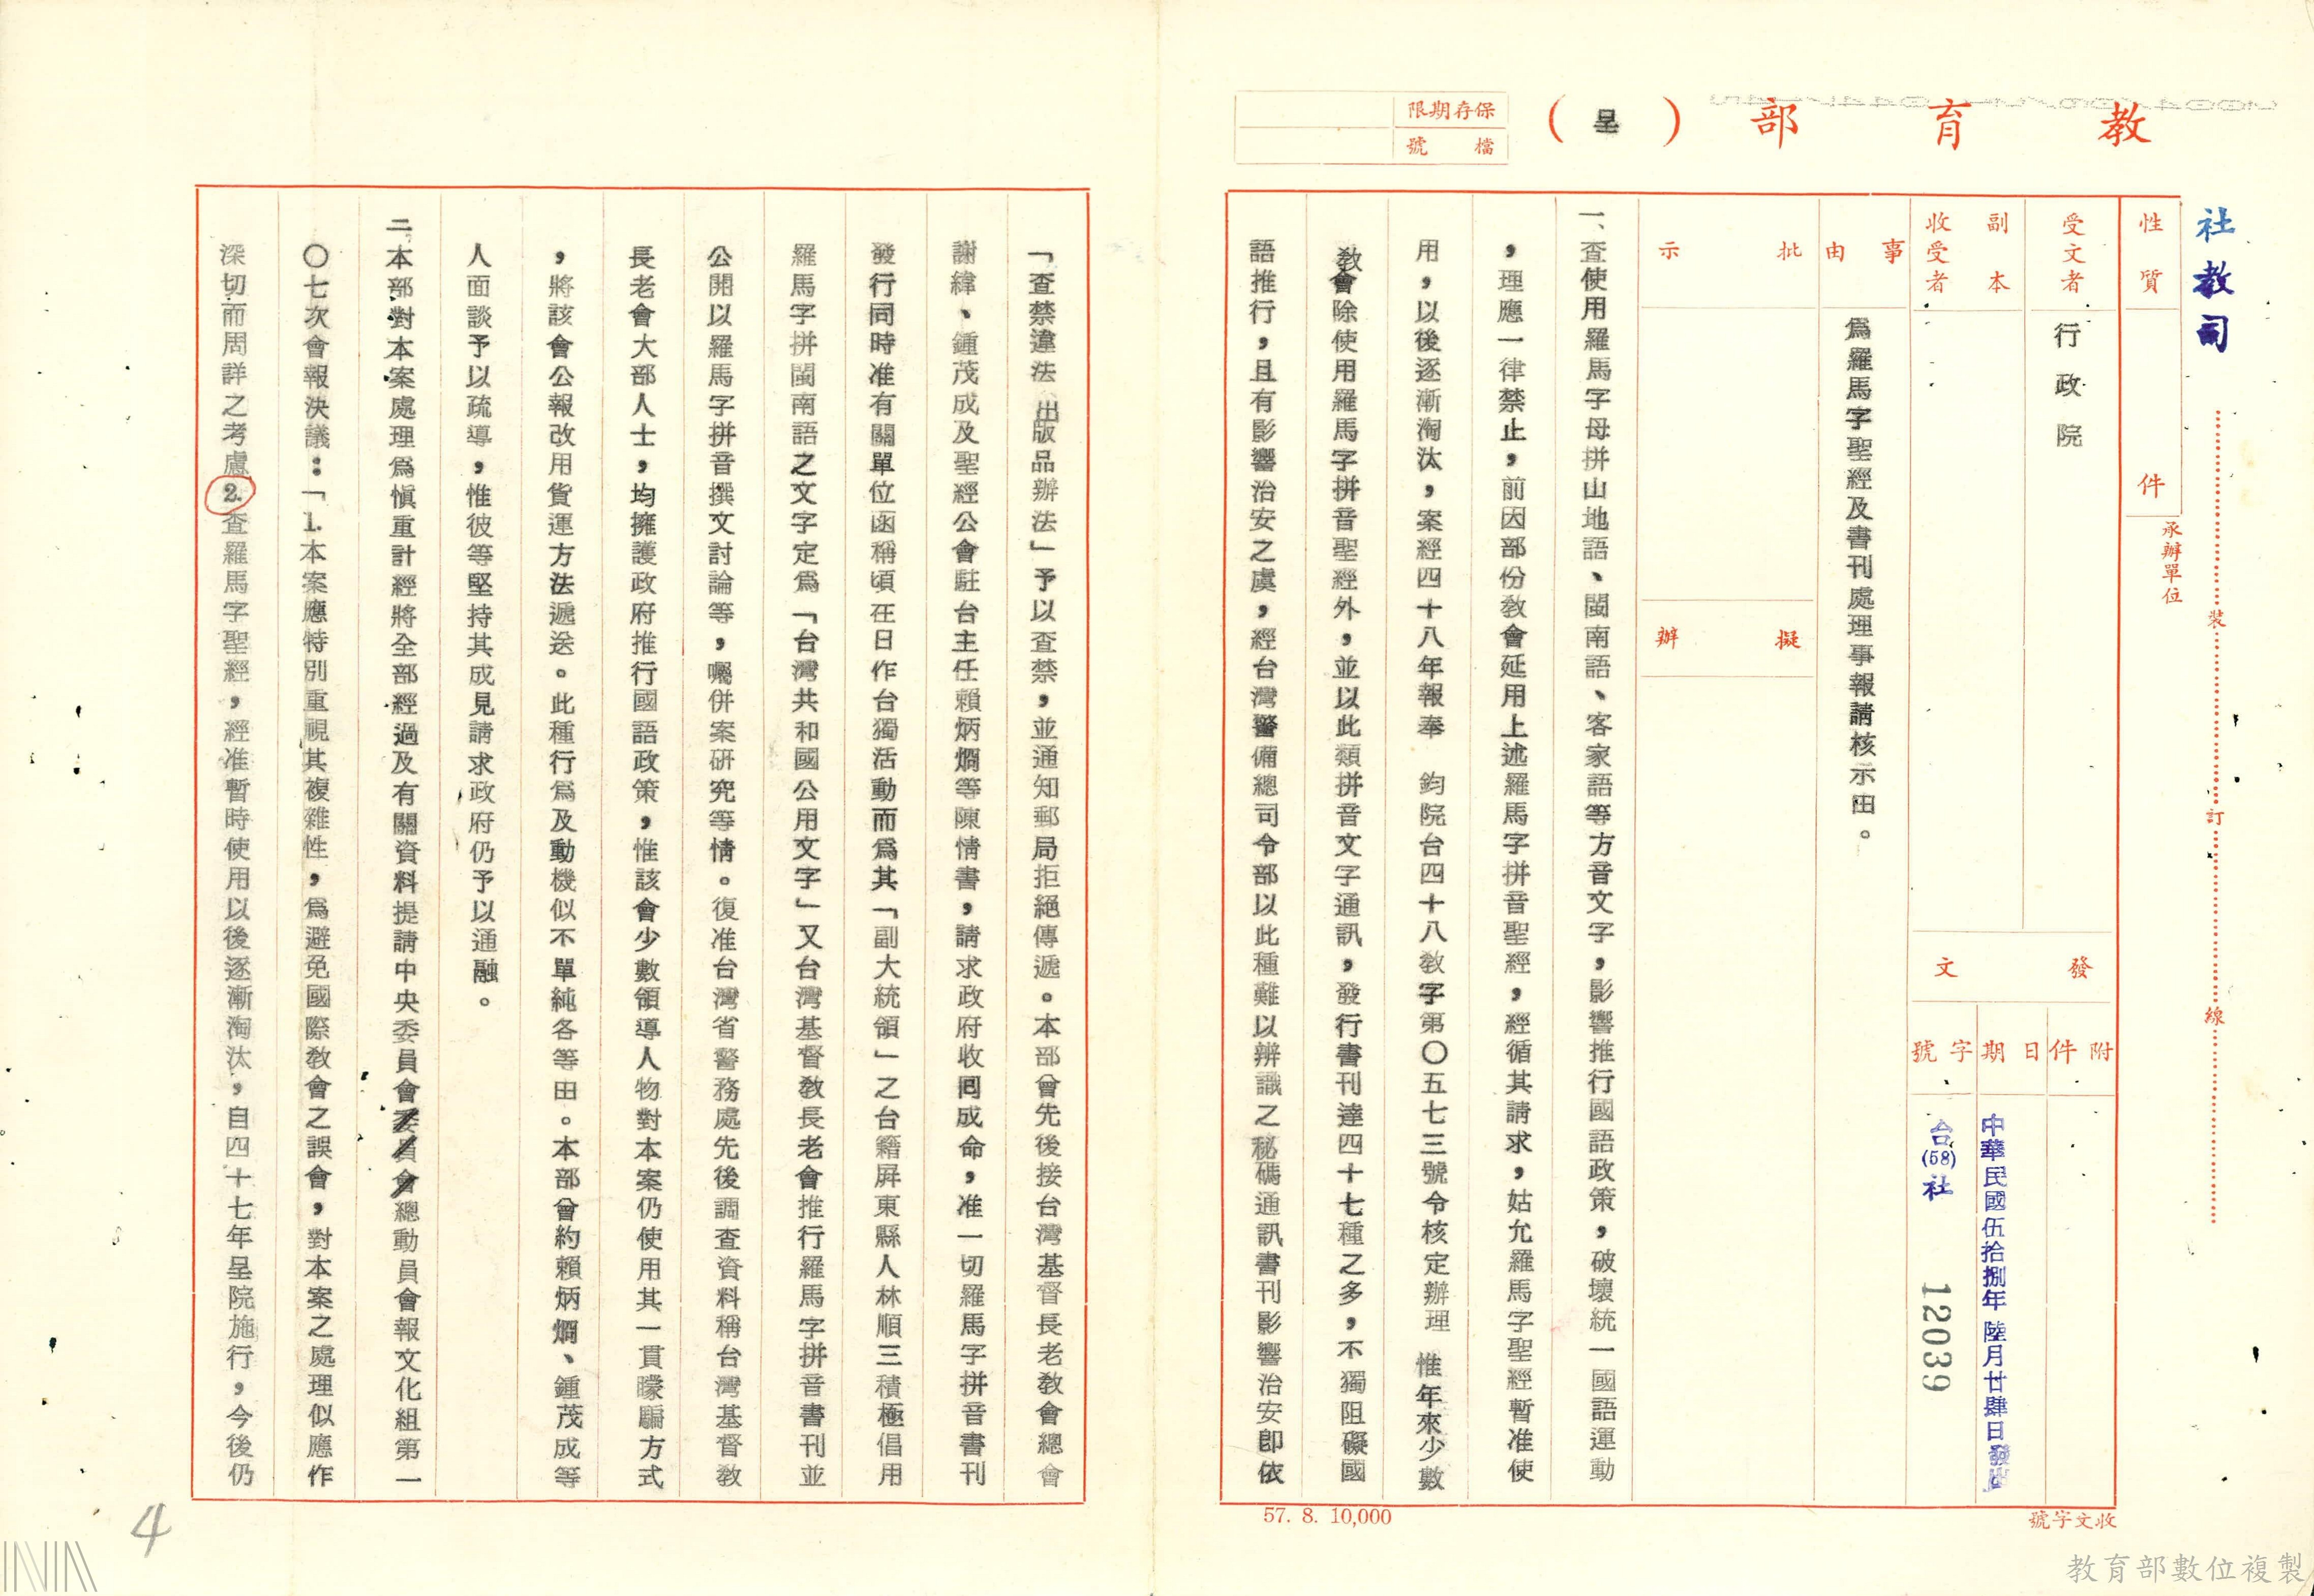 教育部（呈）
保存期限
檔號
社教司
裝訂線
性質
件
承辦單位
受文者
行政院
副本收受者
發文
附件
日期
字號
中華民國伍拾捌年陸月廿肆日發出
台(58)社
12039
事由
為羅馬字聖經及書刊處理事報請核示由。
批示
擬辦
一、查使用羅馬字母拼山地語、閩南語、客家語等方音文字，影響推行國語政策，破壞統一國語運動
，理應一律禁止，前因部份教會延用上述羅馬字拼音聖經，經循其請求，姑允羅馬字聖經暫准使
用，以後逐漸淘汰，案經四十八年報奉　鈞院台四十八教字第〇五七三號令核定辦理　惟年來少數
教會除使用羅馬字拼音聖經外，並以此類拼音文字通訊，發行書刊達四十七種之多，不獨阻礙國
語推行，且有影響治安之虞，經台灣警備總司令部以此種難以辨識之秘碼通訊書刊影響治安即依
57. 8. 10,000
收文字號
「查禁違法出版品辦法」予以查禁，並通知郵局拒絕傳遞。本部曾先後接台灣基督長老教會總會
謝緯、鍾茂成及聖經公會駐台主任賴炳烱等陳情書，請求政府收囘成命，准一切羅馬字拼音書刊
發行同時准有關單位函稱頃在日作台獨活動而為其「副大統領」之台籍屏東縣人林順三積極倡用
羅馬字拼閩南語之文字定為「台灣共和國公用文字」又台灣基督教長老會推行羅馬字拼音書刊並
公開以羅馬字拼音撰文討論等，囑併案研究等情。復准台灣省警務處先後調查資料稱台灣基督教
長老會大部人士，均擁護政府推行國語政策，惟該會少數領導人物對本案仍使用其一貫矇騙方式
，將該會公報改用貨運方法遞送。此種行為及動機似不單純各等由。本部曾約賴炳烱、鍾茂成等
人面談予以疏導，惟彼等堅持其成見請求政府仍予以通融。
二、本部對本案處理為慎重計經將全部經過及有關資料提請中央委員會委員會總動員會報文化組第一
〇七次會報決議：「1.本案應特別重視其複雜性，為避免國際教會之誤會，對本案之處理似應作
深切而周詳之考慮2.查羅馬字聖經，經准暫時使用以後逐漸淘汰，自四十七年呈院施行，今後仍
4
教育部數位複製